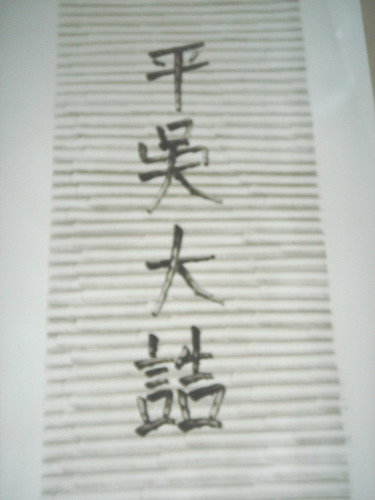 平
吳
大
誥